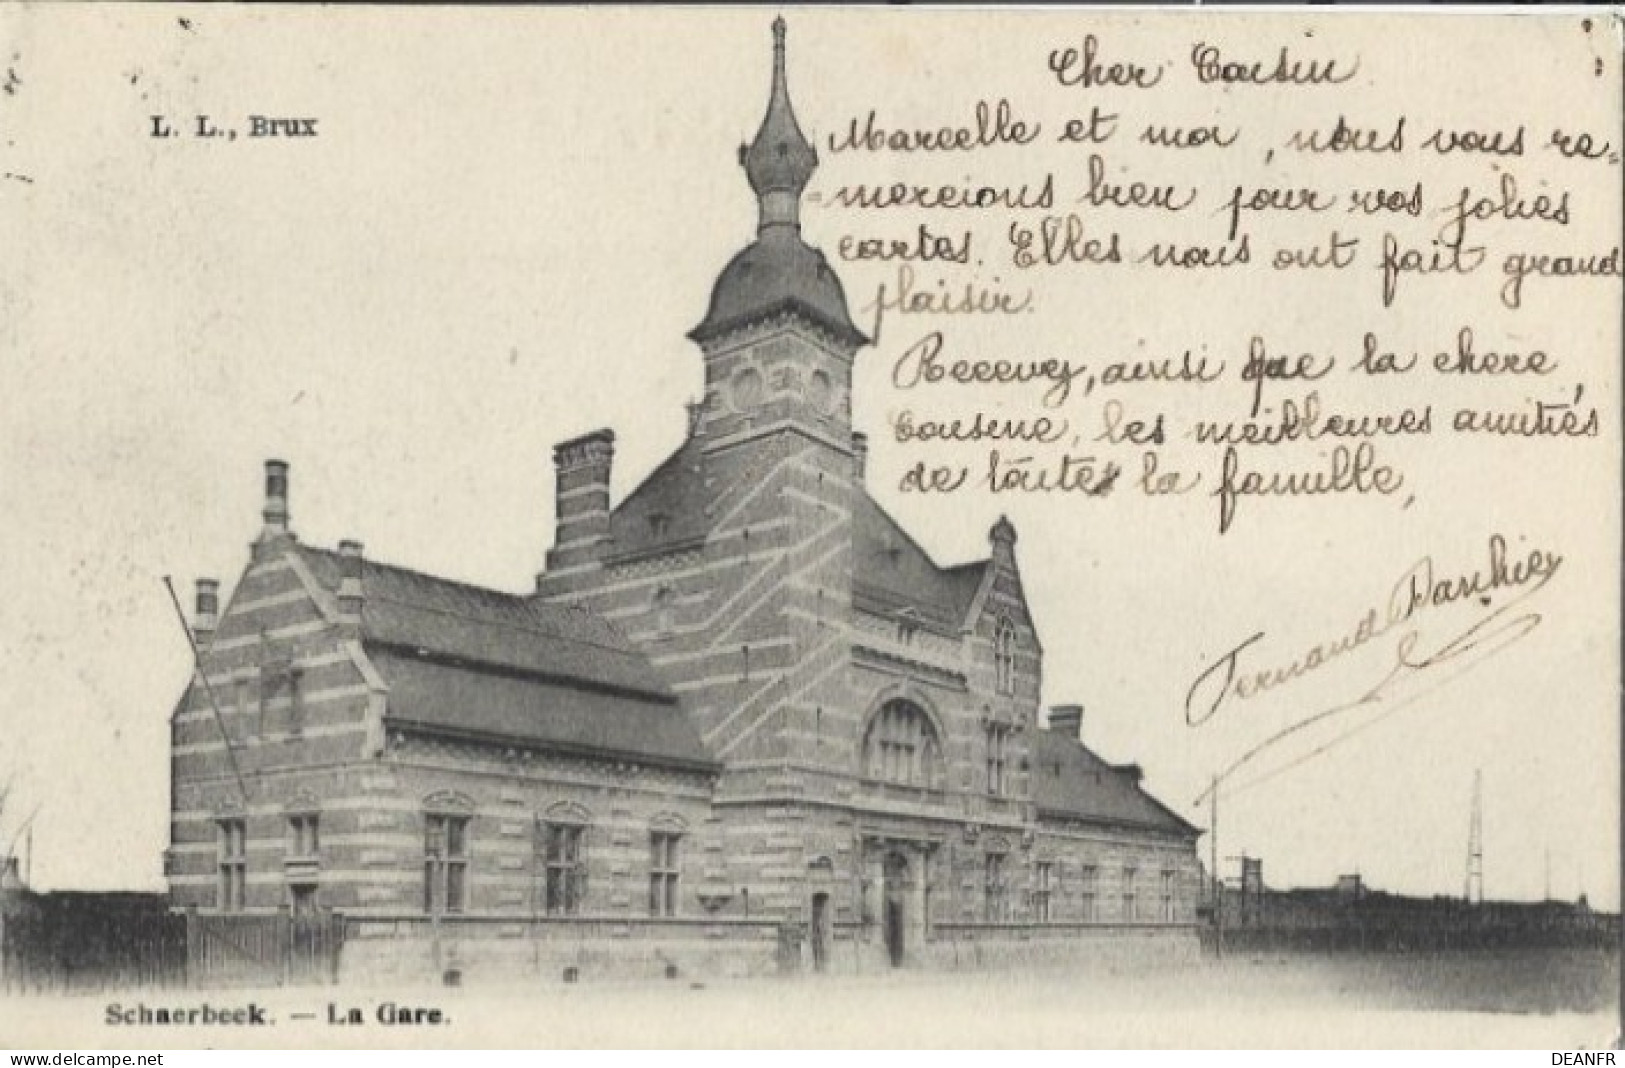 L. L., Brux
Cher Cousin
Marcelle et moi, nous vous re-
-mercions bien pour vos jolies
cartes. Elles nous ont fait grand
plaisir.
Recevez, ainsi que la chère
cousine, les meilleures amitiés
de toute la famille,
Fernand
Schaerbeek. — La Gare.
www.delcampe.net
DEANFR